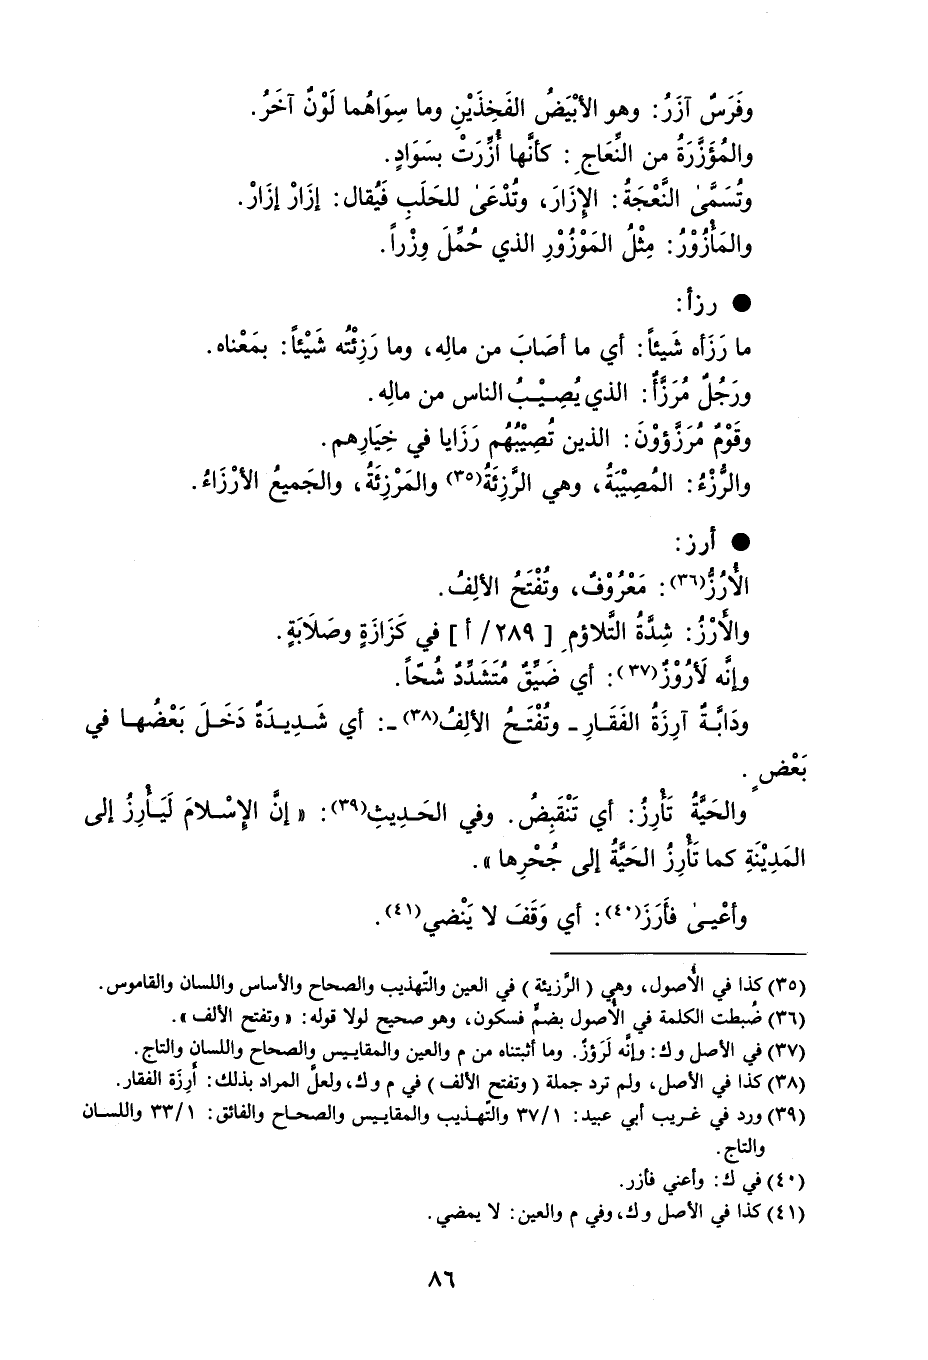 وفَرَسٌ آزَرُ: وهو الأبْيَضُ الفَخِذَيْنِ وما سِوَاهُما لَوْنٌ آخَرُ.
والمُؤَزَّرَةُ من النِّعَاجِ: كأنَّها أُزِّرَتْ بسَوَادٍ.
وتُسَمَّىٰ النَّعْجَةُ: الإِزَارَ، وتُدْعَىٰ للحَلَبِ فَيُقال: إزَارْ إزَارْ.
والمَأْزُوْرُ: مِثْلُ المَوْزُوْرِ الذي حُمِّلَ وِزْراً.
● رزأ:
ما رَزَأه شَيئاً: أي ما أصَابَ من مالِه، وما رَزِئْتُه شَيْئاً: بمَعْناه.
ورَجُلٌ مُرَزَّأٌ: الذي يُصِيْبُ الناس من مالِه.
وقَوْمٌ مُرَزَّؤوْنَ: الذين تُصِيْبُهُم رَزَايا في خِيَارِهم.
والرُّزْءُ: المُصِيْبَةُ، وهي الرَّزِئَةُ(٣٥) والمَرْزِئَةُ، والجَميعُ الأرْزَاءُ.
● أرز:
الأُرُزُّ(٣٦): مَعْرُوْفٌ، وتُفْتَحُ الألِفُ.
والأَرْزُ: شِدَّةُ التَّلاؤمِ [ ٢٨٩/ أ ] في كَزَازَةٍ وصَلَابَةٍ.
وإنَّه لَأرُوْزٌ(٣٧): أي ضَيِّقٌ مُتَشَدِّدٌ شُحّاً.
ودَابَّةٌ آرِزَةُ الفَقَارِ ـ وتُفْتَحُ الألِفُ(٣٨) ـ: أي شَدِيدَةٌ دَخَلَ بَعْضُها في
بَعْضٍ.
والحَيَّةُ تَأْرِزُ: أي تَنْقَبِضُ. وفي الحَدِيثِ(٣٩): « إنَّ الإِسْلامَ لَيَأْرِزُ إلى
المَدِيْنَةِ كما تَأْرِزُ الحَيَّةُ إلى جُحْرِها ».
وأعْيىٰ فأَرَزَ(٤٠): أي وَقَفَ لا يَنْضي(٤١).
(٣٥) كذا في الأُصول، وهي ( الرَّزيئة ) في العين والتّهذيب والصحاح والأساس واللسان والقاموس.
(٣٦) ضُبطت الكلمة في الأُصول بضمٍّ فسكون، وهو صحيح لولا قوله: « وتفتح الألف ».
(٣٧) في الأصل وك: وإنَّه لَرَؤزٌ. وما أثبتناه من م والعين والمقاييس والصحاح واللسان والتاج.
(٣٨) كذا في الأصل، ولم ترد جملة ( وتفتح الألف ) في م وك، ولعلَّ المراد بذلك: أَرِزَة الفقار.
(٣٩) ورد في غريب أبي عبيد: ٣٧/١ والتّهذيب والمقاييس والصحاح والفائق: ٣٣/١ واللسان
والتاج.
(٤٠) في ك: وأعني فأزر.
(٤١) كذا في الأصل وك، وفي م والعين: لا يمضي.
٨٦